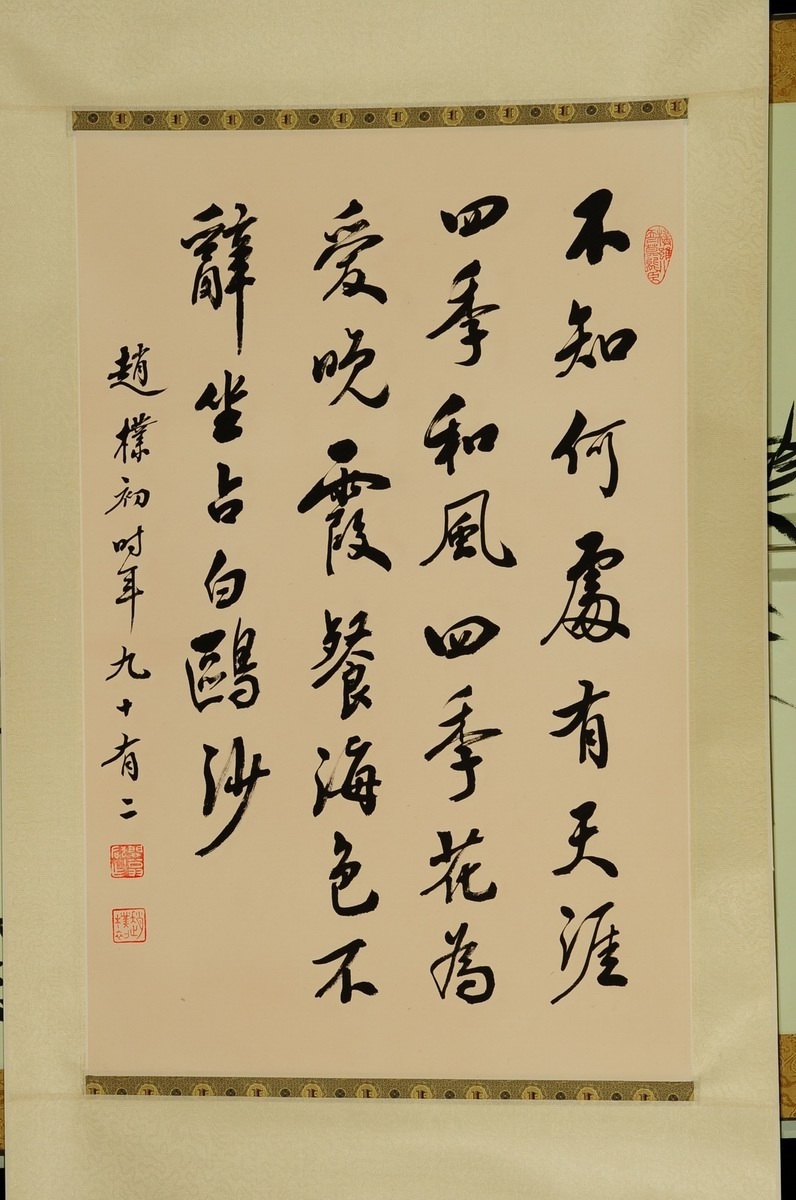 不知何處有天涯
四季和風四季花為
愛晚霞餐海色不
辭坐占白鷗沙
趙樸初時年九十有二